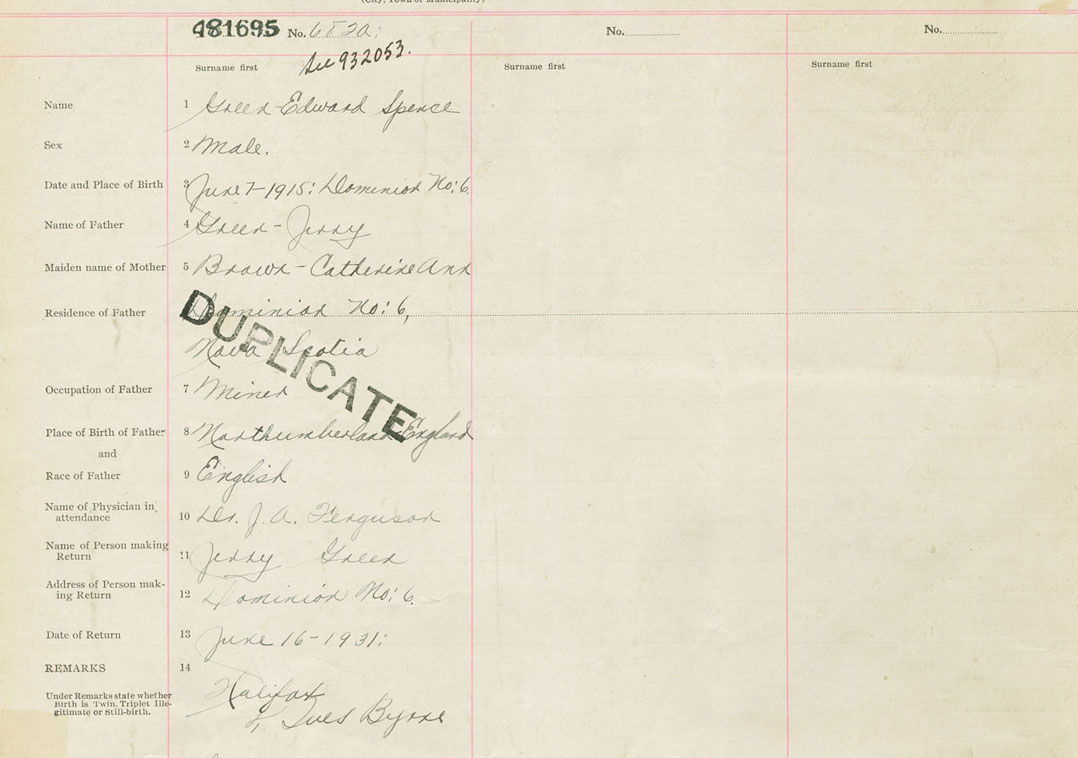 (City, Town or Municipality)
481695 No. 682a:
No.
No.
See 932053.
Surname first
Surname first
Surname first
Name 1 Green-Edward Spence
Sex 2 Male.
Date and Place of Birth 3 June 7-1915: Dominion No: 6
Name of Father 4 Green - Jerry
Maiden name of Mother 5 Brown - Catherine Ann
Residence of Father Dominion No: 6,
Nova Scotia
DUPLICATE
Occupation of Father 7 Miner
Place of Birth of Father 8 Northumberland England
and
Race of Father 9 English
Name of Physician in
attendance 10 Dr. J. A. Ferguson
Name of Person making
Return 11 Jerry Green
Address of Person mak-
ing Return 12 Dominion No: 6.
Date of Return 13 June 16-1931:
REMARKS 14
Halifax
Under Remarks state whether
Birth is Twin, Triplet Ille-
gitimate or Still-birth.
Ives Byrne